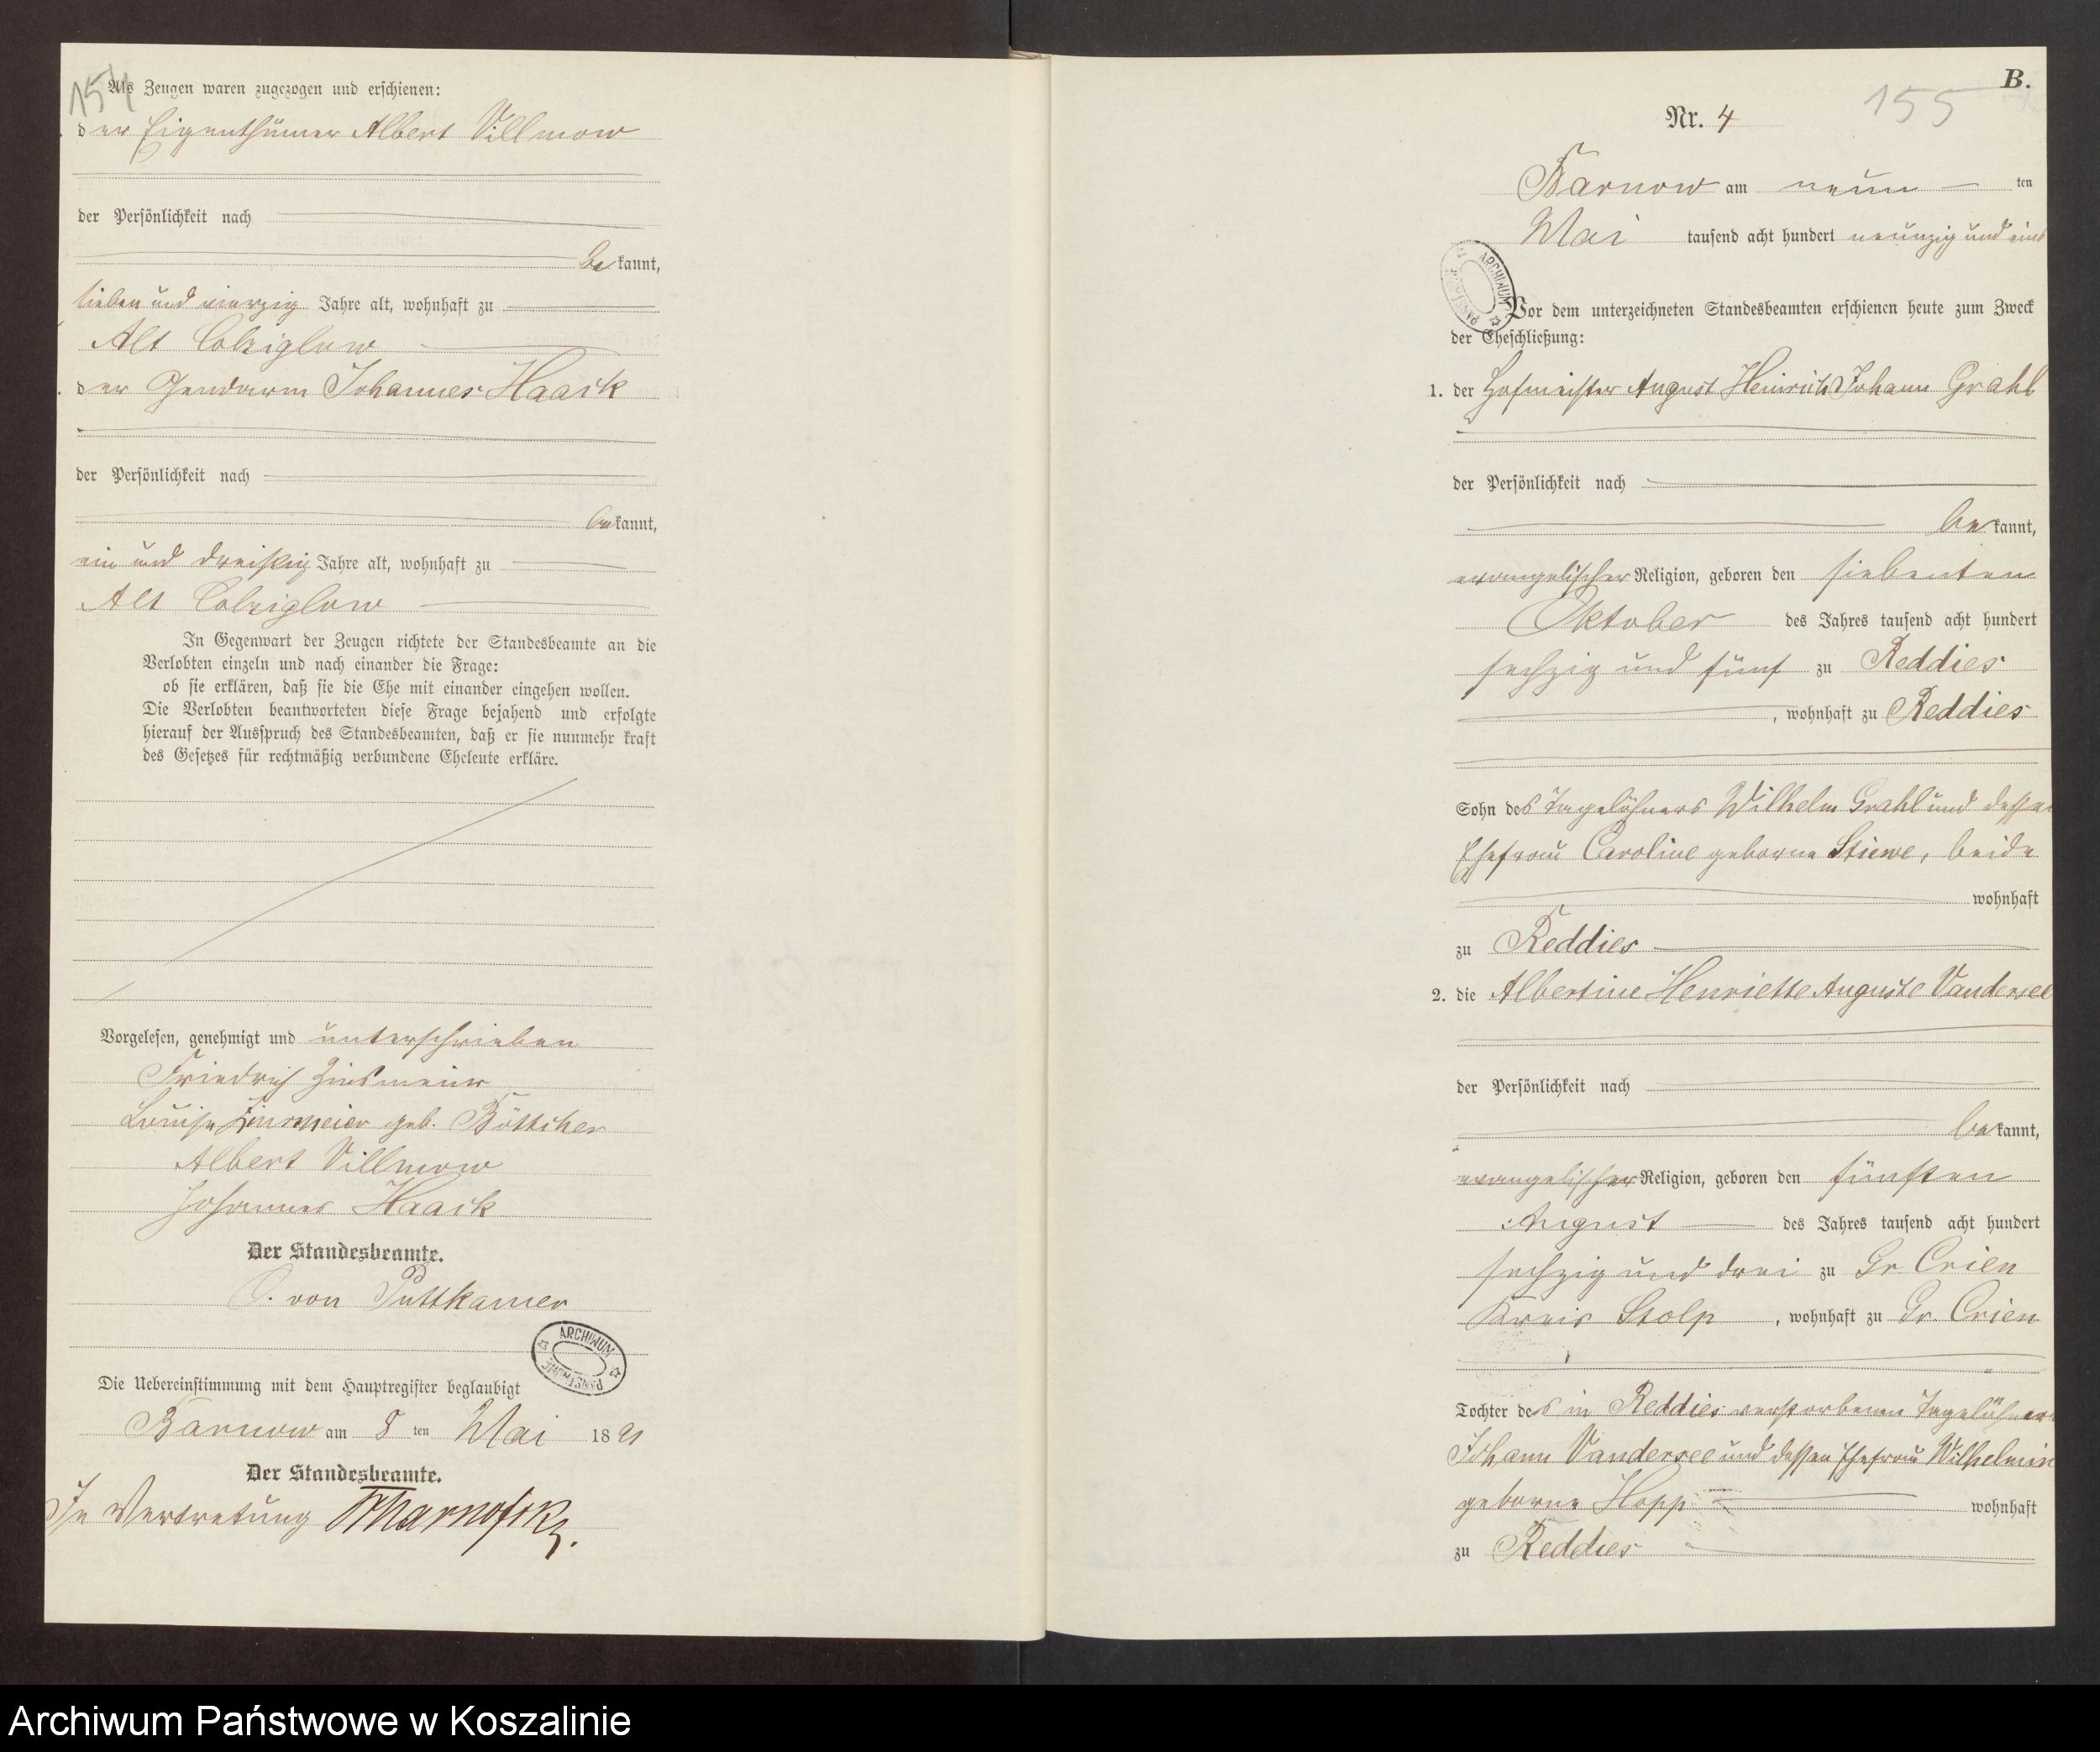 154
Als Zeugen waren zugezogen und erschienen:
der Eigenthümer Albert Villmow
der Persönlichkeit nach
bekannt,
sieben und vierzig Jahre alt, wohnhaft zu
Alt Colziglow
der Gendarm Johannes Haack
der Persönlichkeit nach
bekannt,
ein und dreißig Jahre alt, wohnhaft zu
Alt Colziglow
In Gegenwart der Zeugen richtete der Standesbeamte an die
Verlobten einzeln und nach einander die Frage:
ob sie erklären, daß sie die Ehe mit einander eingehen wollen.
Die Verlobten beantworteten diese Frage bejahend und erfolgte
hierauf der Ausspruch des Standesbeamten, daß er sie nunmehr kraft
des Gesetzes für rechtmäßig verbundene Eheleute erkläre.
Vorgelesen, genehmigt und unterschrieben
Friedrich Zinsmeier
Louise Zinsmeier geb. Böttcher
Albert Villmow
Johannes Haack
Der Standesbeamte.
O. von Puttkamer
ARCHIWUM PAŃSTWOWE
Die Uebereinstimmung mit dem Hauptregister beglaubigt
Barnow am 8 ten Mai 1891
Der Standesbeamte.
In Vertretung
B.
155
Nr. 4
Barnow am neun ten
Mai tausend acht hundert neunzig und eins
ARCHIWUM PAŃSTWOWE
Vor dem unterzeichneten Standesbeamten erschienen heute zum Zweck
der Eheschließung:
1. der Hofmeister August Heinrich Johann Grahl
der Persönlichkeit nach
bekannt,
evangelischer Religion, geboren den siebenten
Oktober des Jahres tausend acht hundert
sechzig und fünf zu Reddies
, wohnhaft zu Reddies
Sohn des Tagelöhners Wilhelm Grahl und dessen
Ehefrau Caroline geborne Stiewe, beide
wohnhaft
zu Reddies
2. die Albertine Henriette Auguste Vandersee
der Persönlichkeit nach
bekannt,
evangelischer Religion, geboren den fünften
August des Jahres tausend acht hundert
sechzig und drei zu Gr Crien
Kreis Stolp , wohnhaft zu Gr. Crien
Tochter des in Reddies verstorbenen Tagelöhners
Johann Vandersee und dessen Ehefrau Wilhelmin
geborne Hopp wohnhaft
zu Reddies
Archiwum Państwowe w Koszalinie